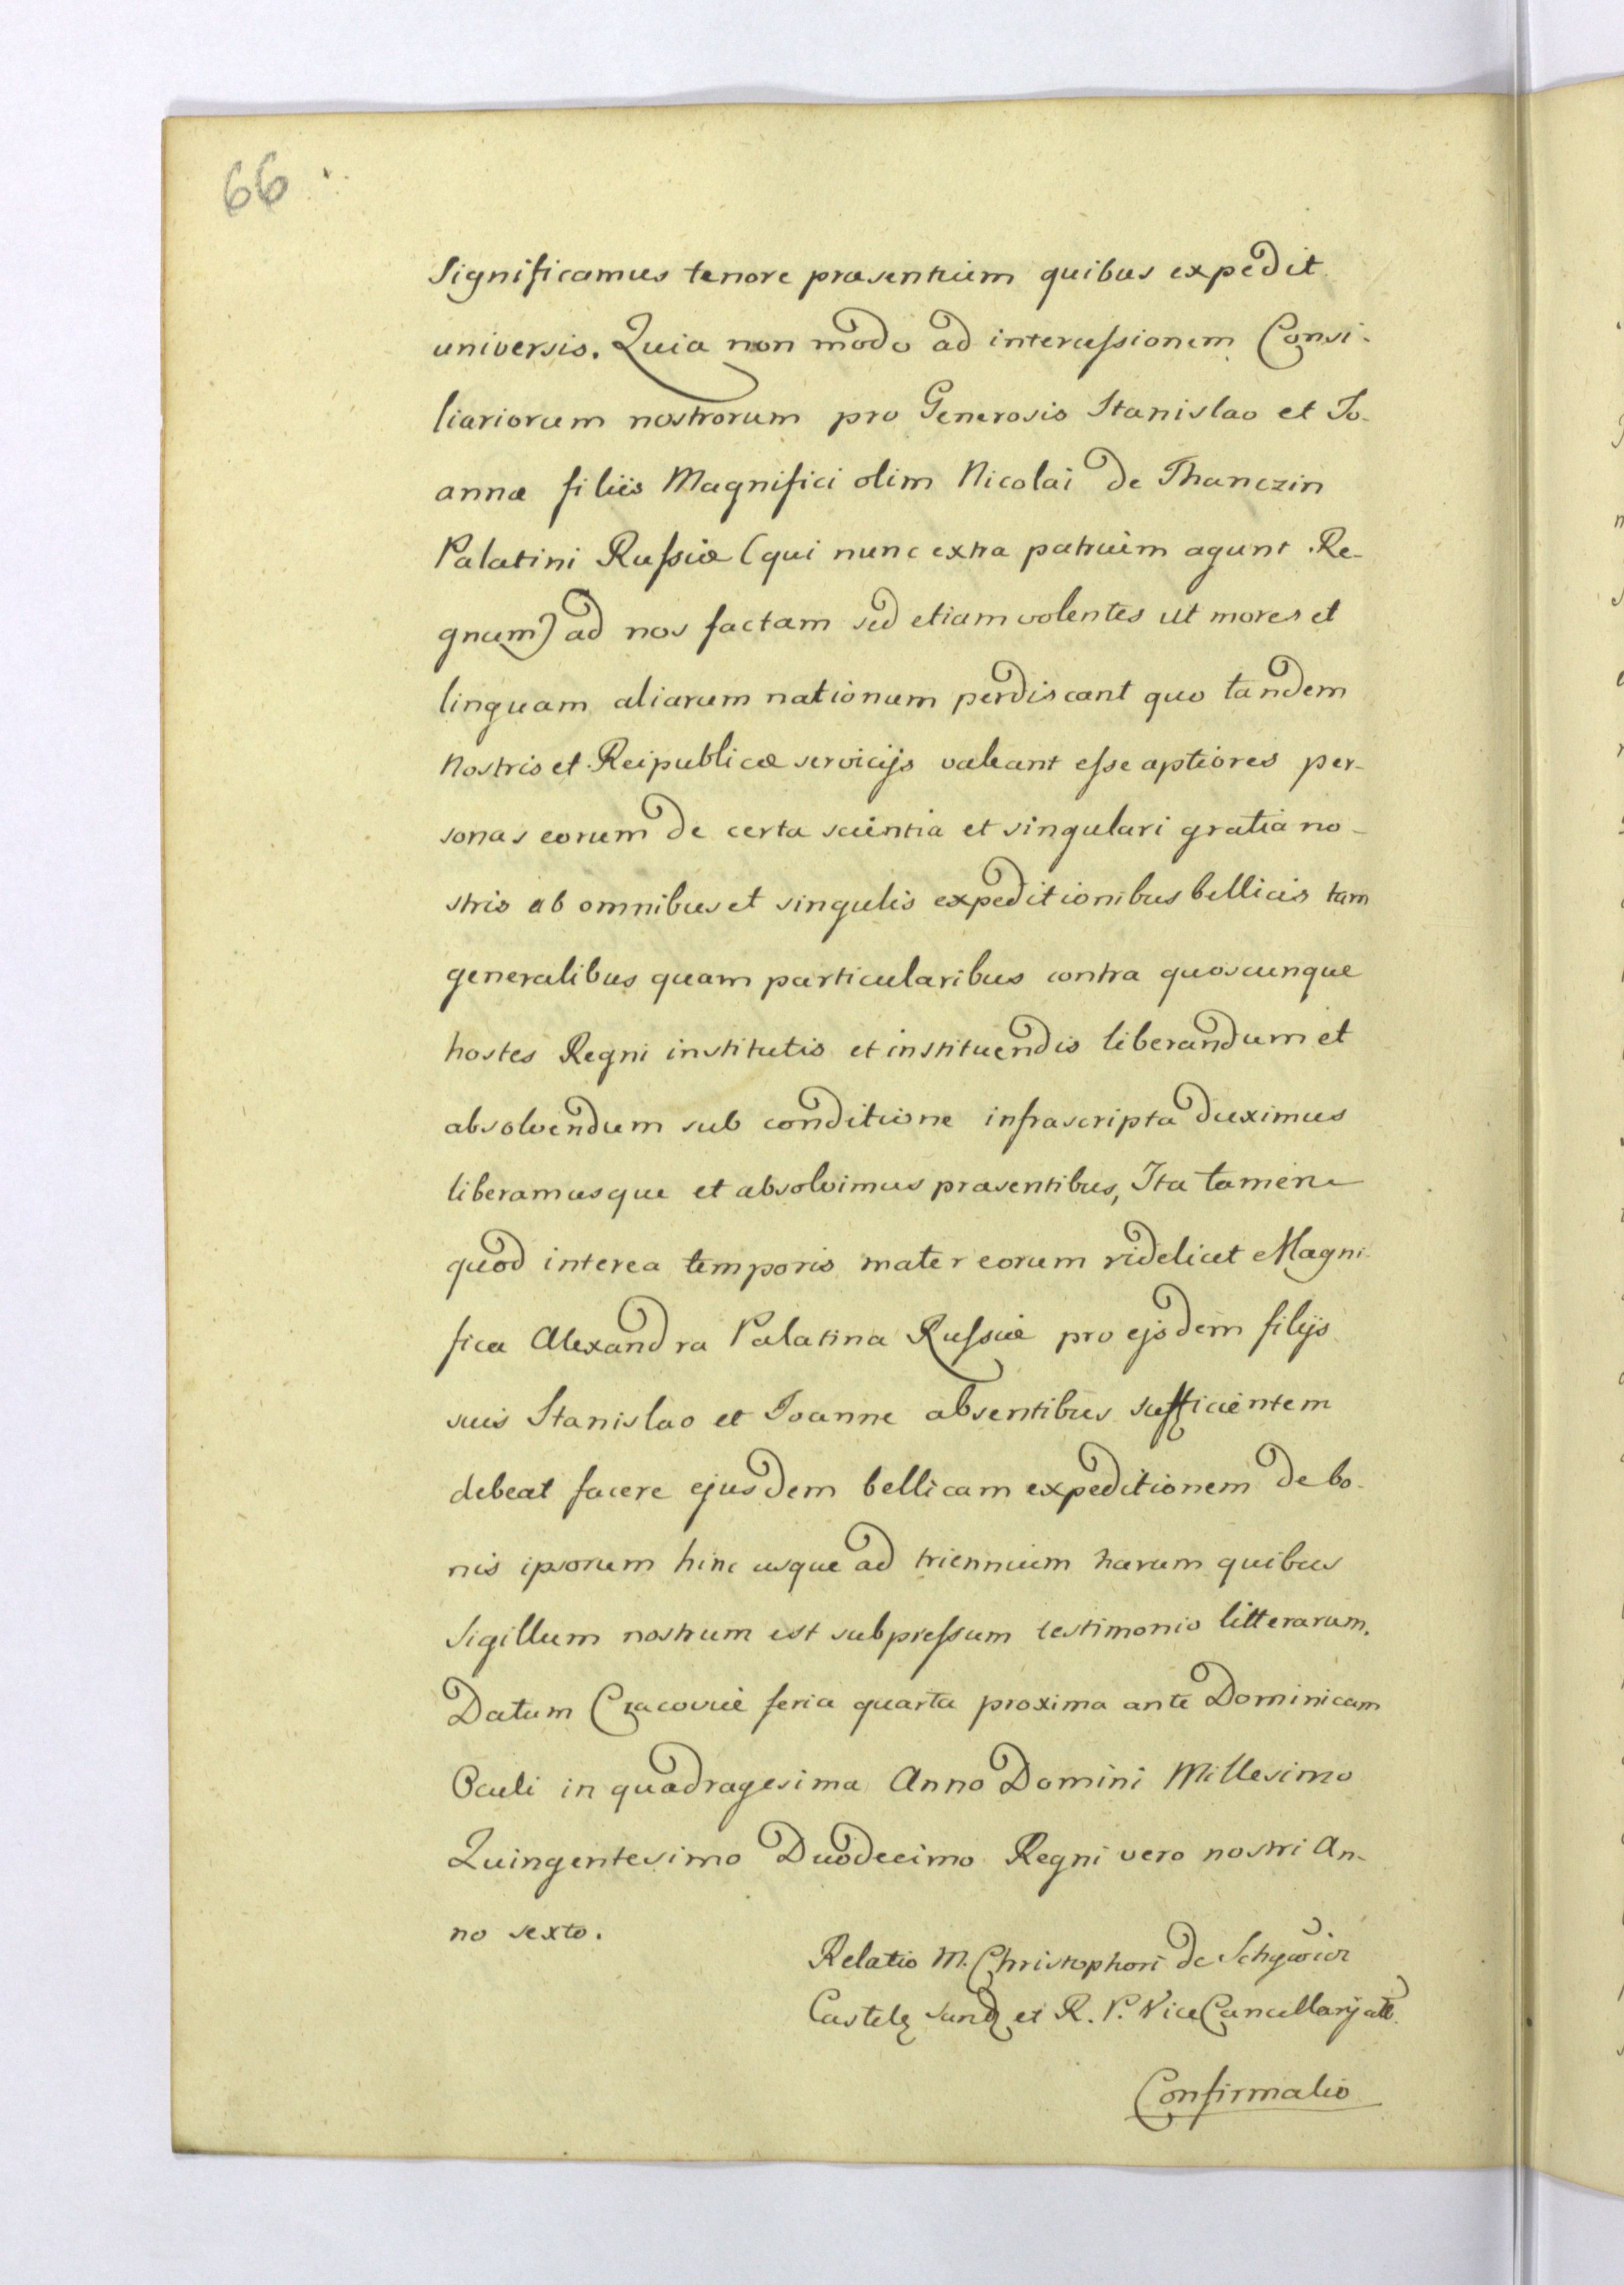 66
Significamus tenore præsentium quibus expedit
universis. Quia non modo ad intercessionem Consi-
liariorum nostrorum pro Generosis Stanislao et Jo-
anne filiis Magnifici olim Nicolai de Thanczin
Palatini Russiæ (qui nunc extra patrium agunt Re-
gnum) ad nos factam sed etiam volentes ut mores et
linguam aliarum nationum perdiscant quo tandem
Nostris et Reipublicæ servicijs valeant esse aptiores per-
sonas eorum de certa scientia et singulari gratia no-
stris ab omnibus et singulis expeditionibus bellicis tam
generalibus quam particularibus contra quoscunque
hostes Regni institutis et instituendis liberandum et
absolvendum sub conditione infrascripta duximus
liberamusque et absolvimus præsentibus, Ita tamen
quod interea temporis mater eorum videlicet Magni-
fica Alexandra Palatina Russiæ pro ejsdem filijs
suis Stanislao et Joanne absentibus sufficientem
debeat facere ejusdem bellicam expeditionem de bo-
nis ipsorum hinc usque ad triennium harum quibus
Sigillum nostrum est subpressum testimonio litterarum.
Datum Cracoviæ feria quarta proxima ante Dominicam
Oculi in quadragesima Anno Domini Millesimo
Quingentesimo Duodecimo Regni vero nostri An-
no sexto.
Relatio M. Christophori de
et R. P. Vice Cancellarij
Confirmatio